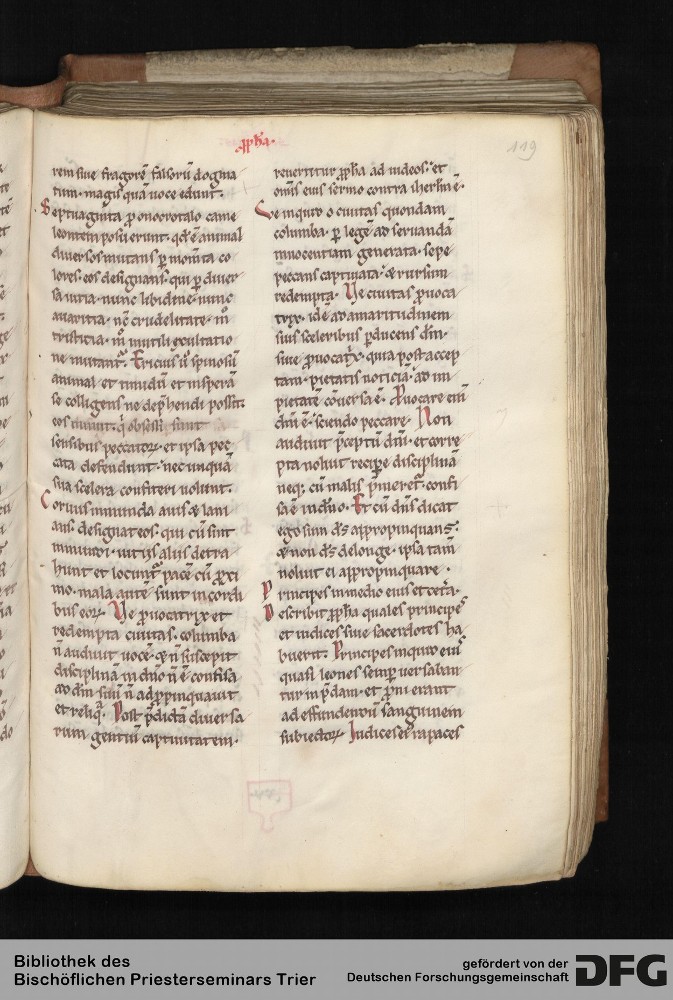 .ꝓph̄a.
119
rem siue fragorē falsorū dogma
tum· magis quā uoce edunt·
Septuaginta ꝓ onocrotalo came
leontem posuerunt· qd̄ ē animal
diuersos mutans ꝑ momta co
lores· eos designans· qui ꝑ diuer
sa uitia· nunc libidine· nunc
auaritia· nc̄ crudelitate·
tristicia· inutili exultatio
ne mutant᷑· Ericius u͛ spinosū
animal et timidū et in
se colligens ne dep̄hendi possit·
eos
sensibus peccatoꝝ· et ipsa pec
cata defendunt· nec unquā
sua scelera confiteri uolunt·
Coruus inmunda auis & lani
ans· designat eos· qui cū sint
inmundi· uitiis aliis detra
hunt et locunt᷑ pacē cū ꝓxi
mo· mala autē sunt in cordi
bus eoꝝ· Ve ꝓuocatrix et
redempta ciuitas· columba
n̄ audiuit uocē· & n̄ suscepit
disciplinā in dn̄o n̄ ē confisa
ad dm̄ suū n̄ adpropinquauit
et reliq̄· Post p̄dictā diuersa
rum gentiū captiuitatem·
reuertitur ꝓph̄a ad iudeos· et
omīs eius sermo contra iherlm̄ ē·
Ve inquid o ciuitas quondam
columba· ꝑ legē ad seruandā
innocentiam generata· sepe
peccans captiuata· & rursum
redempta· Ve ciuitas ꝓuoca
trix· id ē ad amaritudinem
suis sceleribus ꝑducens dm̄·
siue ꝓuocat͛x· quia post accep
tam pietatis noticiā· ad im
pietatē cōuersa ē· Ꝓuocare enī
dm̄ ē· sciendo peccare· Non
audiuit p̄ceptū dn̄i· et corre
pta noluit recipe disciplinā
neq; cū malis p̄meret᷑· confi
sa ē in dn̄o· Et cū dn̄s dicat
ego sum ds̄ appropinquans·
& non ds̄ delonge· ipsa tam̄
noluit ei appropinquare·
Principes in medio eius et cet͛a·
Describit ꝓph̄a quales principes
et iudices siue sacerdotes ha
buerit· Principes inquid eius
quasi leones semꝑ uersaban
tur in p̄dam· et ꝓni erant
ad effundendū sanguinem
subiectoꝝ· Iudices ei rapaces
Bibliothek des
Bischöflichen Priesterseminars Trier
gefördert von der
Deutschen Forschungsgemeinschaft
DFG